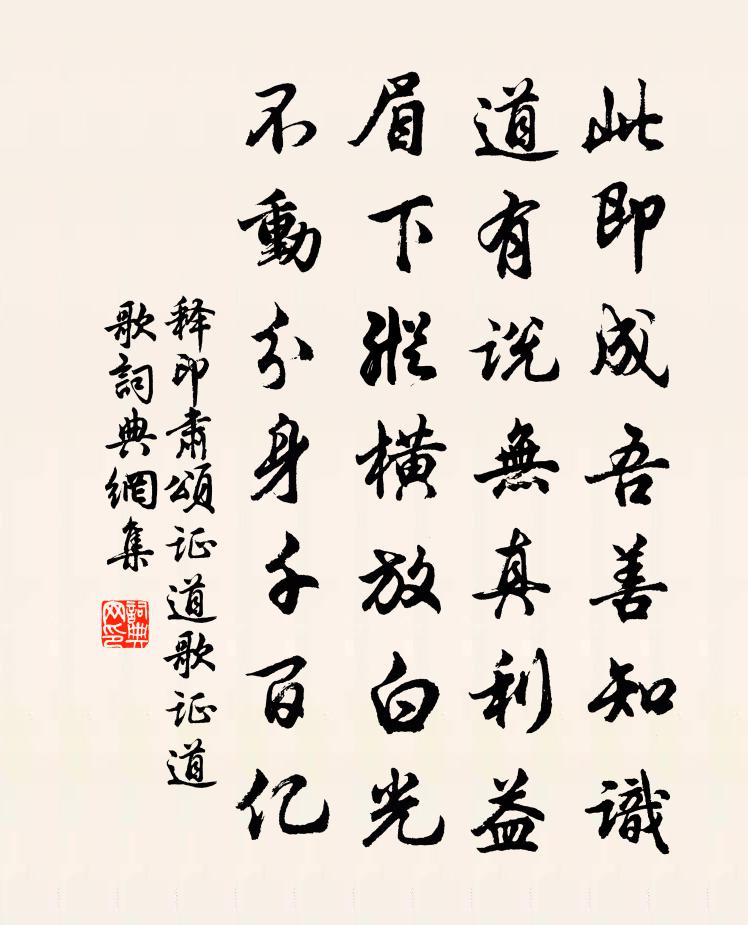 此即成吾善知識
道有说無真利益
眉下縱橫放白光
不動分身千百亿
释印肃頌证道歌证道
歌詞典網集
詞典
网印